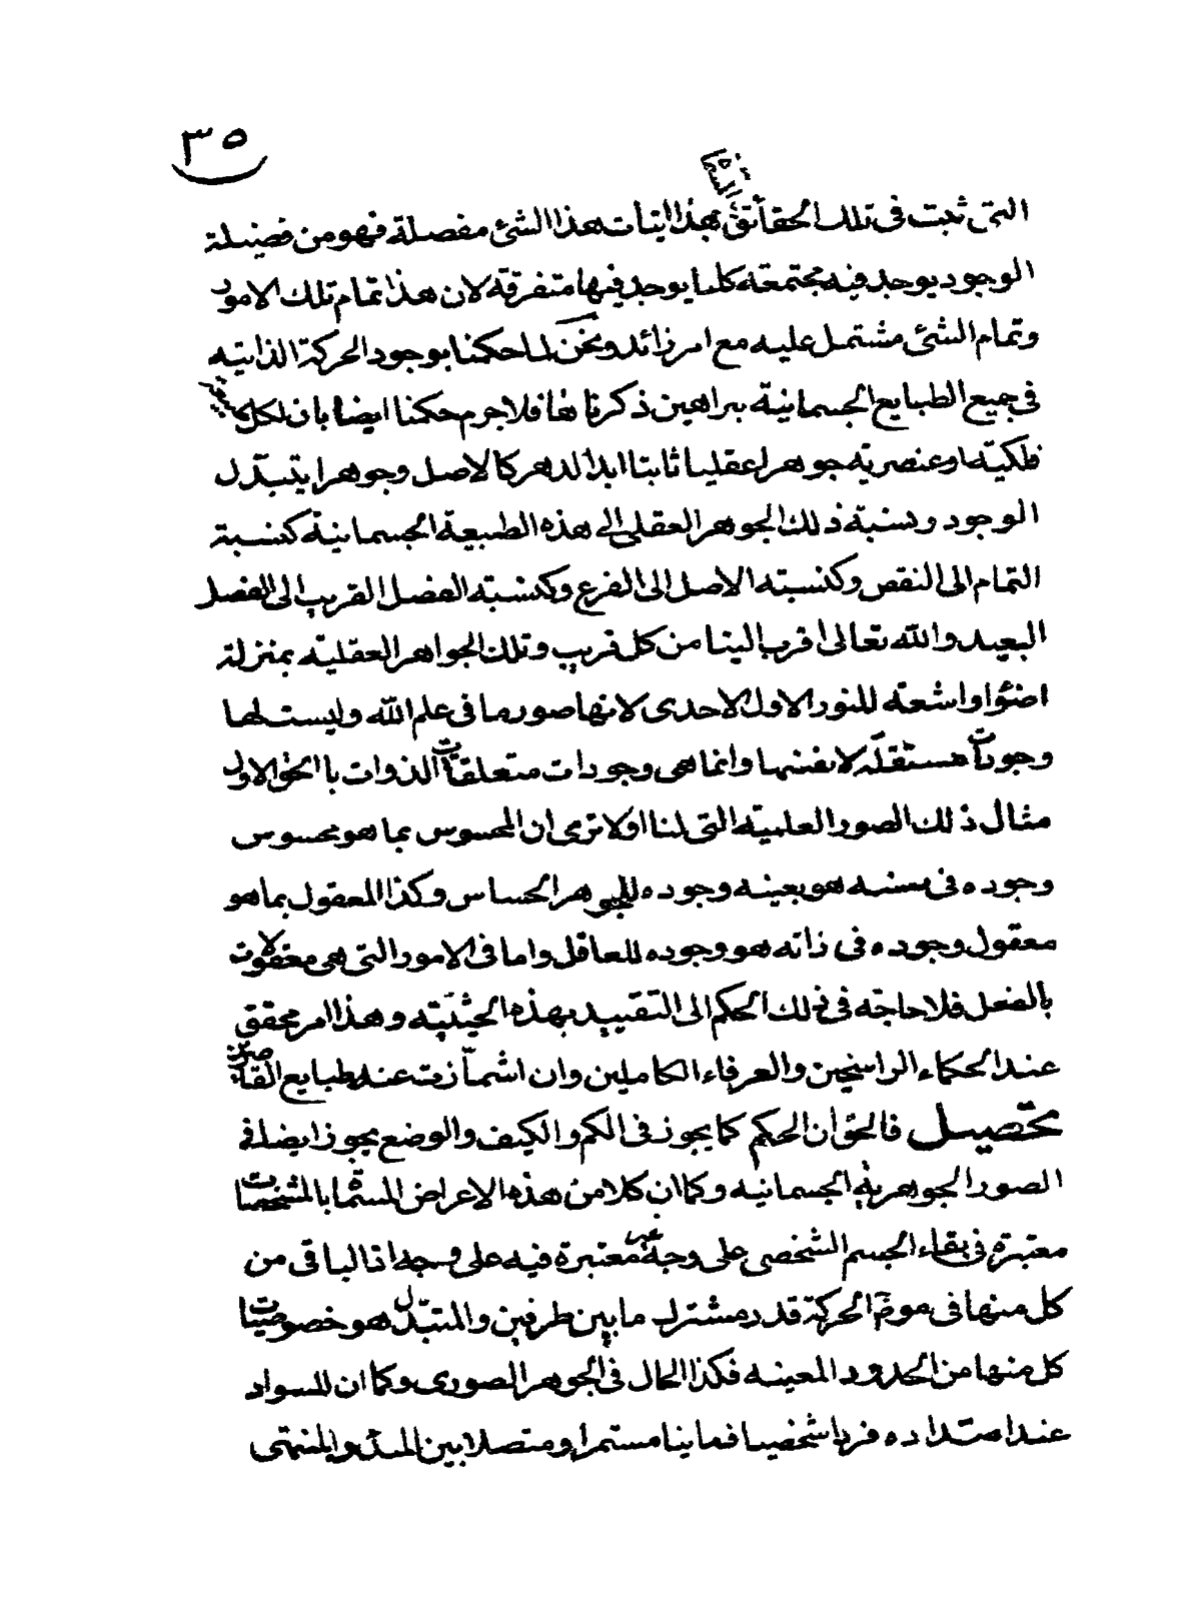 ٣٥
التى ثبت فى تلك الحقائق بهذا اثبات هذا الشئ مفصلة فهو من فضيلة
الوجود يوجد فيه مجتمعة كلما يوجد فيها متفرقة لان هذا تمام تلك الامور
وتمام الشئ مشتمل عليه مع امر زائد ونحن لما حكمنا بوجود الحركة الذاتية
فى جميع الطبايع الجسمانية ببراهين ذكرناها فلاجرم حكمنا ايضا بان لكل طبيعة
فلكية او عنصرية جوهرا عقليا ثابتا ابد الدهر كالاصل وجوهرا يتبدّل
الوجود ونسبة ذلك الجوهر العقلى الى هذه الطبيعة الجسمانية كنسبة
التمام الى النقص وكنسبة الاصل الى الفرع وكنسبة الفصل القريب الى الفصل
البعيد والله تعالى اقرب الينا من كل قريب وتلك الجواهر العقلية بمنزلة
اضؤا واشعة للنور الاول الاحدى لانها صور ما فى علم الله وليست لها
وجودات مستقلّة لانفسها وانما هى وجودات متعلقات الذوات بالحق الاول
مثال ذلك الصور العلمية التى لنا اولا ترى ان المحسوس بما هو محسوس
وجوده فى نفسه هو بعينه وجوده للجوهر الحساس وكذا المعقول بما هو
معقول وجوده فى ذاته هو وجوده للعاقل واما فى الامور التى هى معقولات
بالفعل فلا حاجة فى ذلك الحكم الى التقييد بهذه الحيثية وهذا امر محقق
عند الحكماء الراسخين والعرفاء الكاملين وان اشمأزت عنه طبايع القاصرين
تحصيل فالحق ان الحكم كما يجوز فى الكم والكيف والوضع يجوز ايضا فى
الصور الجوهرية الجسمانية وكما ان كلا من هذه الاعراض المسمّا بالمشخصات
معتبرة فى بقاء الجسم الشخصى على وجه غير معتبرة فيه على وجه اذ الباقى من
كل منها فى موضع الحركة قدر مشترك ما بين طرفين والمتبدّل هو خصوصيات
كل منها من الحدود المعينة فكذا الحال فى الجوهر الصورى وكما ان للسواد
عند امتداده فردا شخصيا فماينا مستمرا ومتصلا بين المبدء والمنتهى